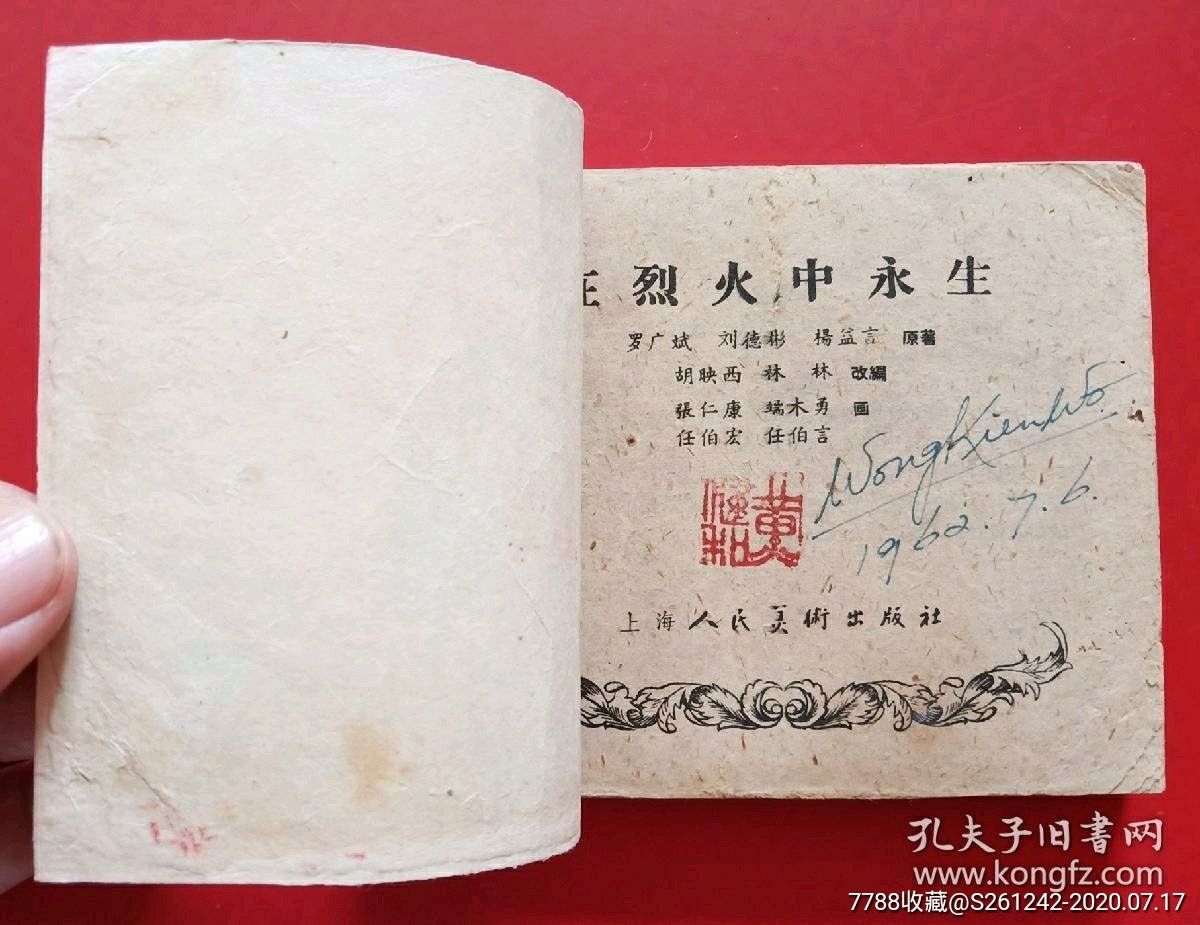 在烈火中永生
罗广斌 刘德彬 楊益言 原著
胡映西 林 林 改編
張仁康 端木勇 画
任伯宏 任伯言
黄健和
Wong Kien Wo.
1962.7.6.
上海人民美術出版社
孔夫子旧書网
www.kongfz.com
7788收藏@S261242-2020.07.17